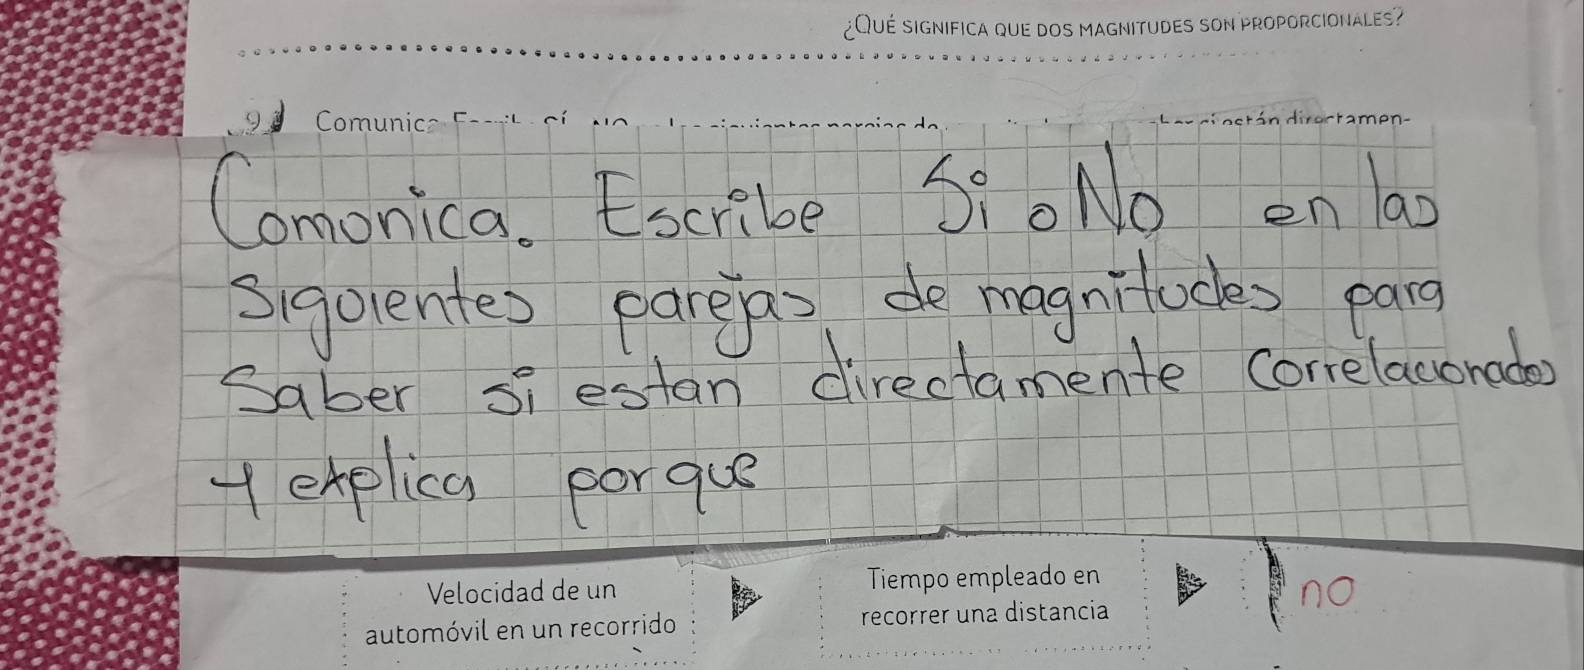 ¿QUÉ SIGNIFICA QUE DOS MAGNITUDES SON PROPORCIONALES?
9 Comunica
Comonica. Escribe Si o No en las
Sigoientes parejas de magnitudes para
Saber si estan directamente Correlacionados
Y explica por que
Velocidad de un
automóvil en un recorrido
Tiempo empleado en
recorrer una distancia
no